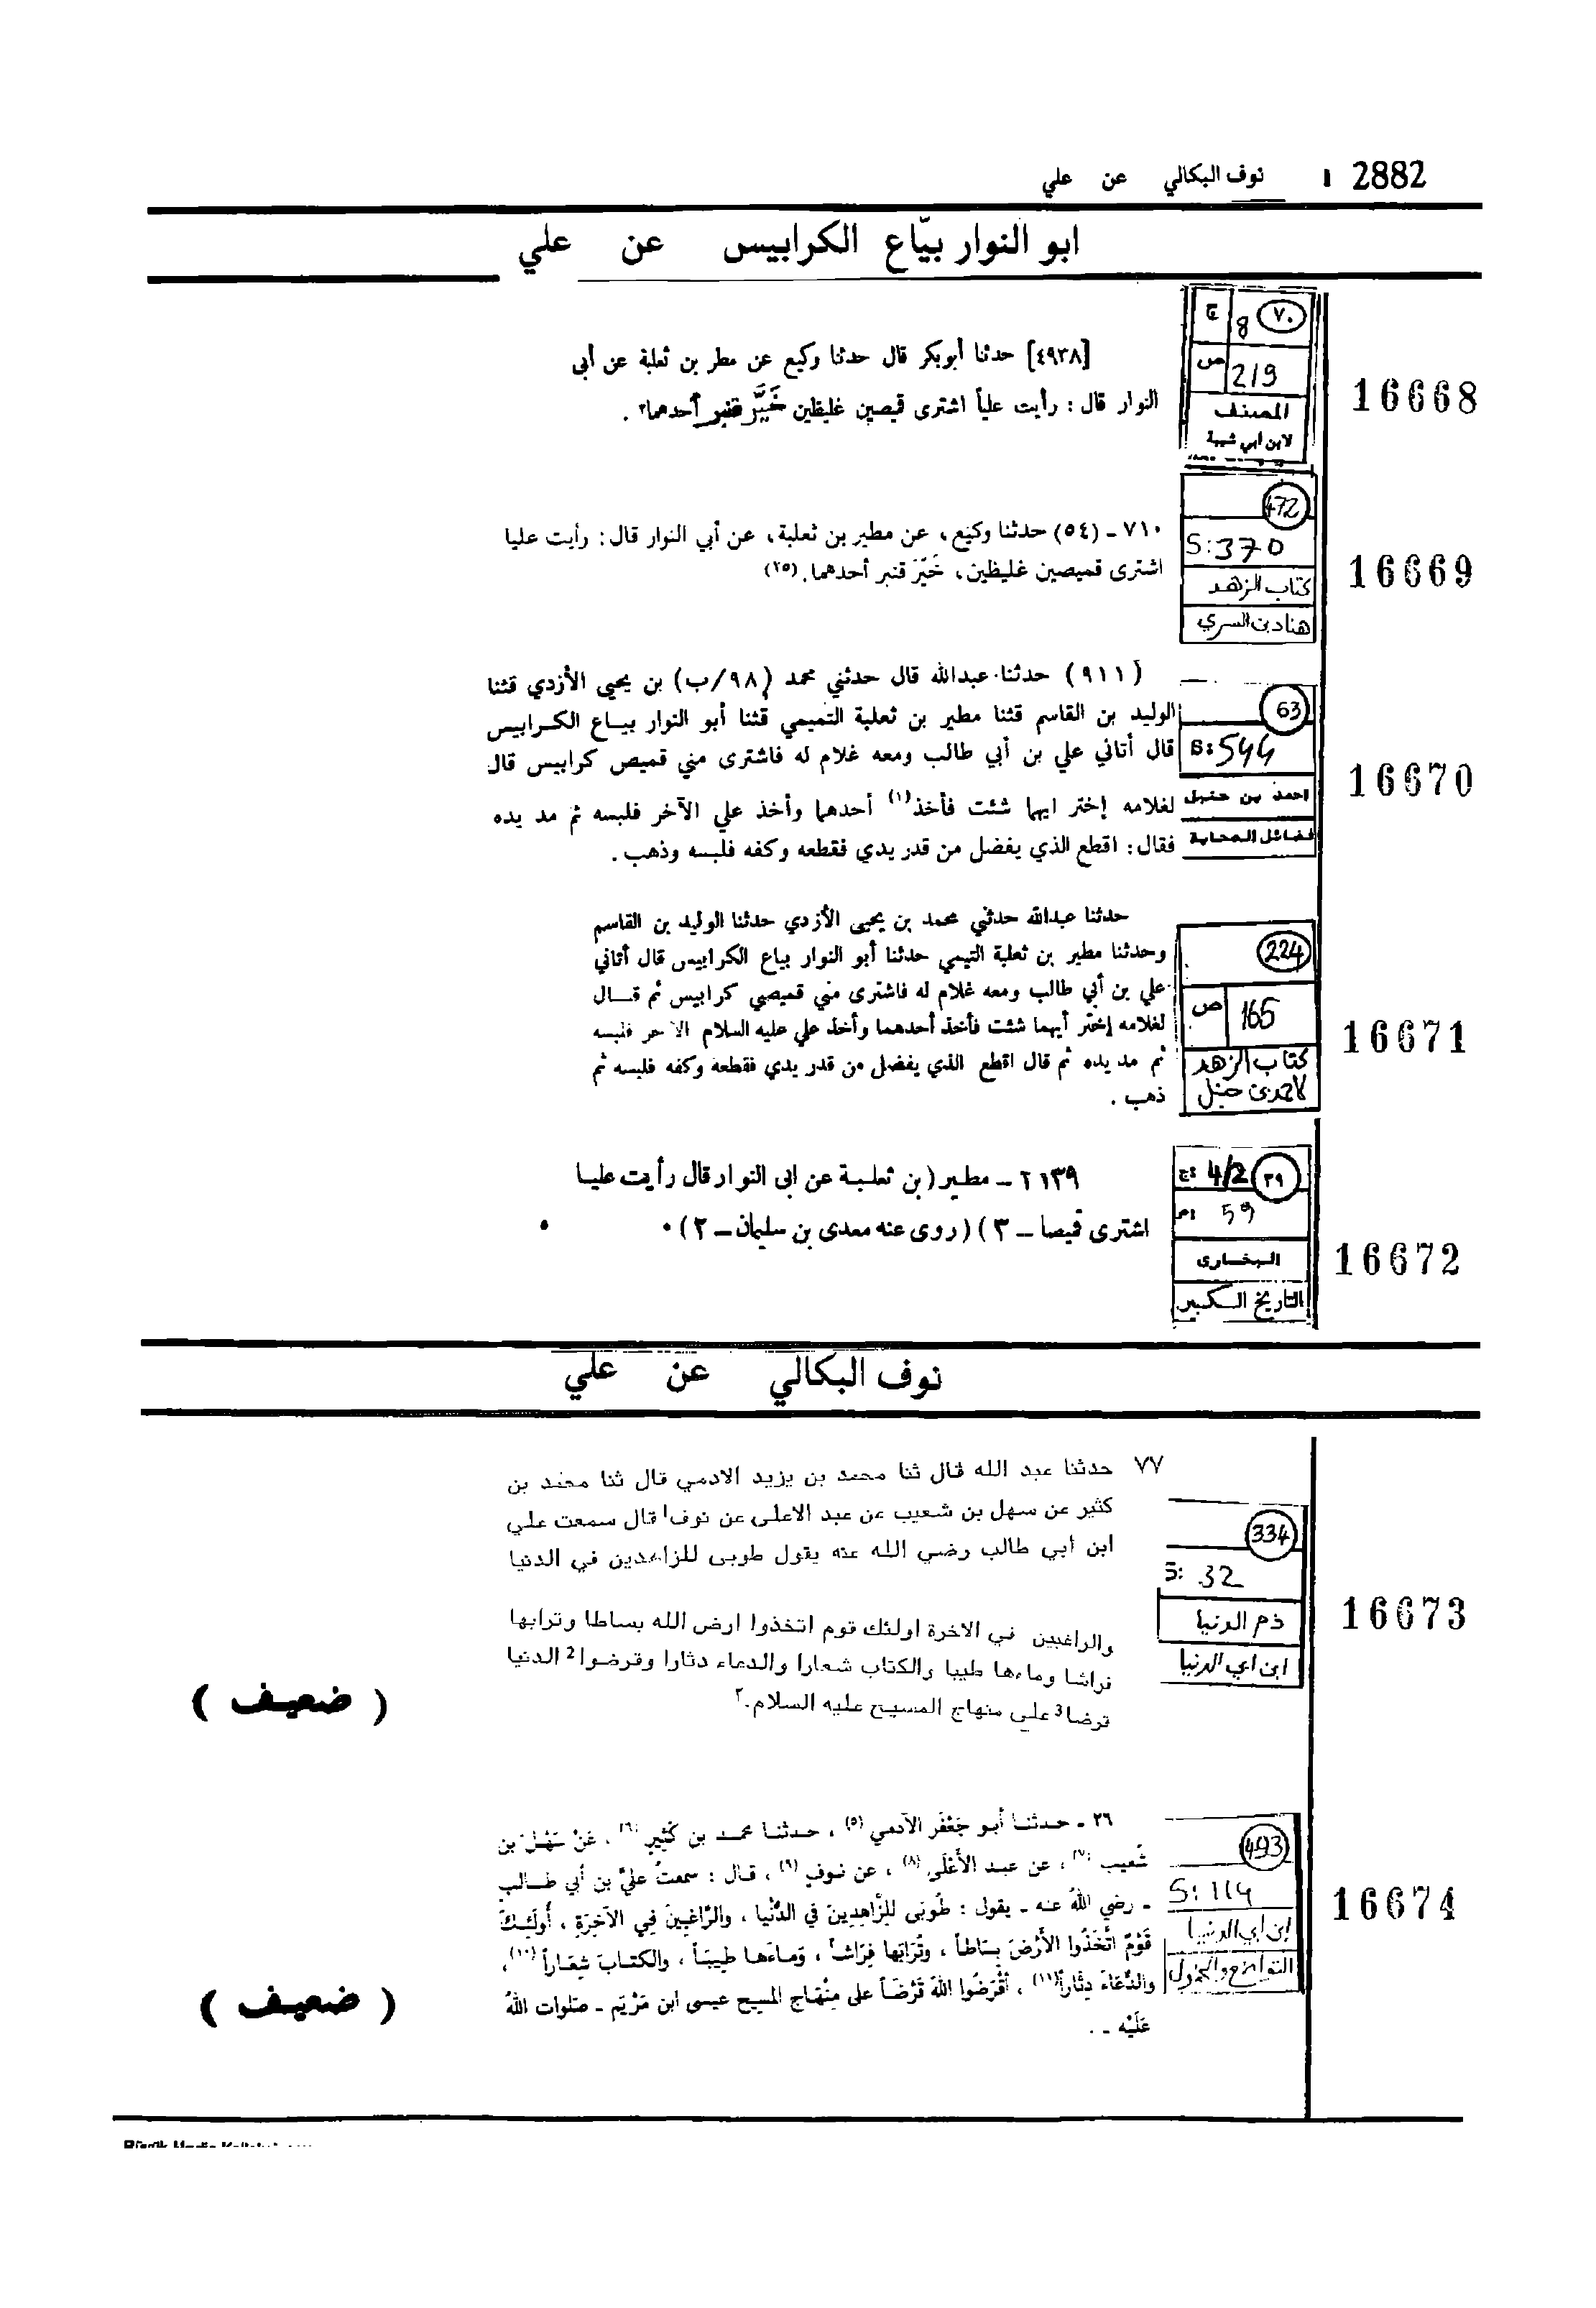 2882 ı نوف البكالي عن علي
ابو النوار بيّاع الكرابيس عن علي
٧٠ 8 ج
219 ص
المصنف
لابن ابي شيبة
16668
[٤٩٣٨] حدثنا أبوبكر قال حدثنا وكيع عن مطر بن ثعلبة عن أبي
النوار قال : رأيت علياً اشترى قيصين غليظين خَيَّر قنبر أحدهما٢ .
472
S:370
كتاب الزهد
هناد بن السري
16669
٧١٠ - (٥٤) حدثنا وكيع، عن مطير بن ثعلبة، عن أبي النوار قال: رأيت عليا
اشترى قميصين غليظين، خَيّرَ قنبر أحدهما. (٢٥)
63
S:544
احمد بن حنبل
فضائل الصحابة
16670
(٩١١) حدثنا عبدالله قال حدثني محمد (٩٨/ب) بن يحيى الأزدي قثنا
الوليد بن القاسم قثنا مطير بن ثعلبة التميمي قثنا أبو النوار بياع الكرابيس
قال أتاني علي بن أبي طالب ومعه غلام له فاشترى مني قميص كرابيس قال
لغلامه إختر ايهما شئت فأخذ(١) أحدهما وأخذ علي الآخر فلبسه ثم مد يده
فقال: اقطع الذي يفضل من قدر يدي فقطعه وكفه فلبسه وذهب .
224
165 ص
كتاب الزهد
لاحمد بن حنبل
16671
حدثنا عبدالله حدثني محمد بن يحيى الأزدي حدثنا الوليد بن القاسم
وحدثنا مطير بن ثعلبة التيمي حدثنا أبو النوار بياع الكرابيس قال أتاني
علي بن أبي طالب ومعه غلام له فاشترى مني قميصي كرابيس ثم قال
لغلامه إختر أيهما شئت فأخذ أحدهما وأخذ علي عليه السلام الآخر فلبسه
ثم مد يده ثم قال اقطع الذي يفضل من قدر يدي فقطعه وكفه فلبسه ثم
ذهب .
٣٩ 4/2 ج:
59 ص:
البخارى
التاريخ الكبير
16672
٢١٣٩ - مطير (بن ثعلبة عن ابى النوار قال رأيت عليا
اشترى قيصا - ٣) (روى عنه معدى بن سليمان - ٢) ٠
نوف البكالي عن علي
334
S: 32
ذم الدنيا
ابن ابي الدنيا
16673
٧٧ حدثنا عبد الله قال ثنا محمد بن يزيد الادمي قال ثنا محمد بن
كثير عن سهل بن شعيب عن عبد الاعلى عن نوف١ قال سمعت علي
ابن ابي طالب رضي الله عنه يقول طوبى للزاهدين في الدنيا
والراغبين في الاخرة اولئك قوم اتخذوا ارض الله بساطا وترابها
فراشا وماءها طيبا والكتاب شعارا والدعاء دثارا وقرضوا2 الدنيا
قرضا3 على منهاج المسيح عليه السلام.٢
( ضعيف )
493
S: 114
ابن ابي الدنيا
التواضع والخمول
16674
٢٦ - حدثنا أبو جَعْفَر الآدمي (٥) ، حدثنا محمد بن كَثِيرٍ (٦) ، عَنْ سَهْل بن
شُعيب (٧) ، عن عبد الأَعْلَى (٨) ، عن نوفٍ (٩) ، قال : سمعتُ عليَّ بن أبي طالب
- رضي اللهُ عنه - يقول : طُوبَى لِلزَّاهِدِينَ في الدُّنْيا ، والرَّاغِبِينَ فِي الآخِرَةِ ، أُولَئِكَ
قَوْمٌ اتَّخَذُوا الأَرْضَ بِسَاطاً ، وتُرَابَها فِرَاشاً ، وَمَاءَهَا طِيبَاً ، والكتابَ شِعَاراً (١٠) ،
والدُّعَاءَ دِثَاراً (١١) ، أقْرَضُوا اللهَ قَرْضَاً على مِنْهاجِ المسيح عيسى ابن مَرْيَم - صَلوات اللهُ
عَلَيْه - .
( ضعيف )